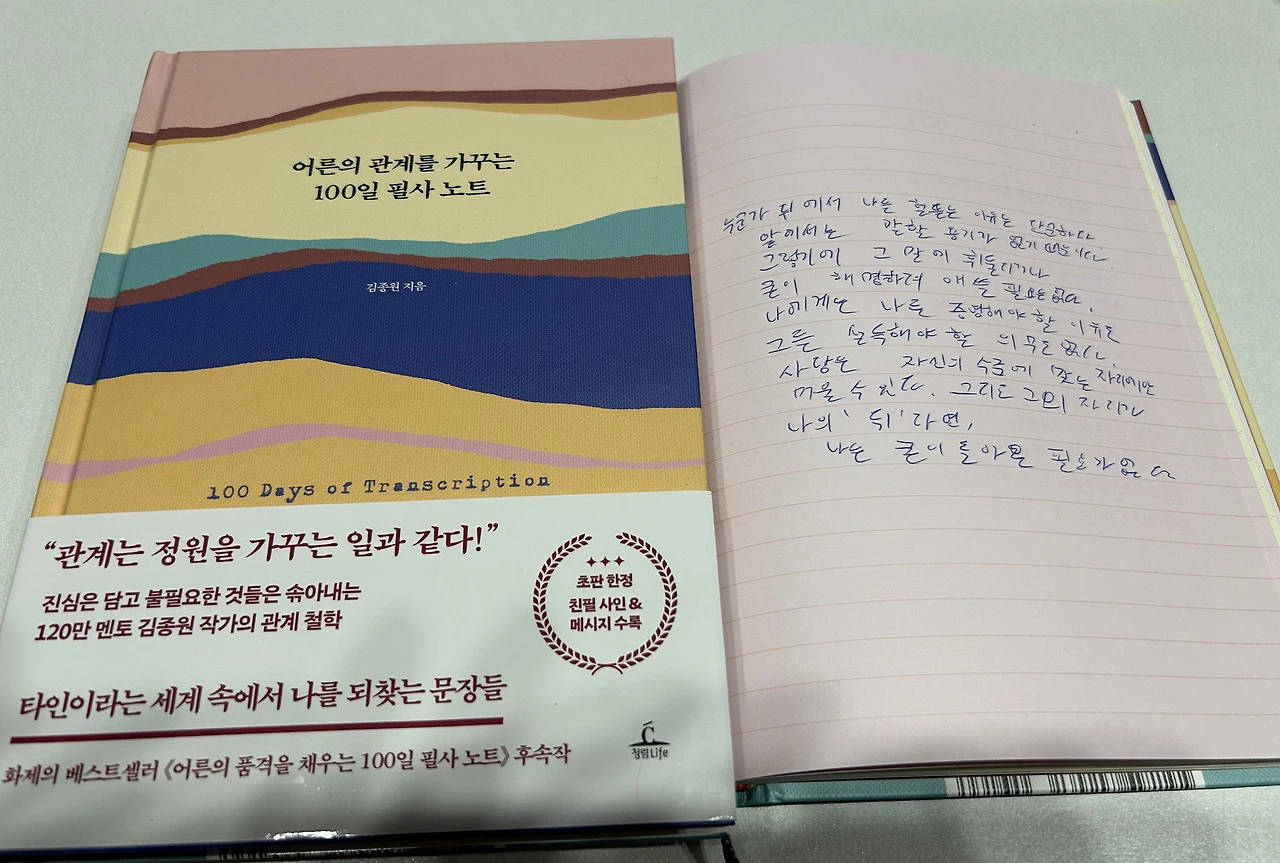 어른의 관계를 가꾸는
100일 필사 노트
김종원 지음
100 Days of Transcription
“관계는 정원을 가꾸는 일과 같다!”
진심은 담고 불필요한 것들은 솎아내는
120만 멘토 김종원 작가의 관계 철학
초판 한정
친필 사인 &
메시지 수록
타인이라는 세계 속에서 나를 되찾는 문장들
청림Life
화제의 베스트셀러 《어른의 품격을 채우는 100일 필사 노트》 후속작
누군가 뒤에서 나를 헐뜯는 이유는 단순하다.
앞에서는 말할 용기가 없기 때문이다.
그렇기에 그 말에 휘둘리거나
굳이 해명하려 애쓸 필요는 없다.
나에게는 나를 증명해야 할 이유도
그를 설득해야 할 의무도 없다.
사람은 자신의 수준에 맞는 자리에만
머물 수 있다. 그리고 그의 자리가
나의 '뒤'라면,
나는 굳이 돌아볼 필요가 없다